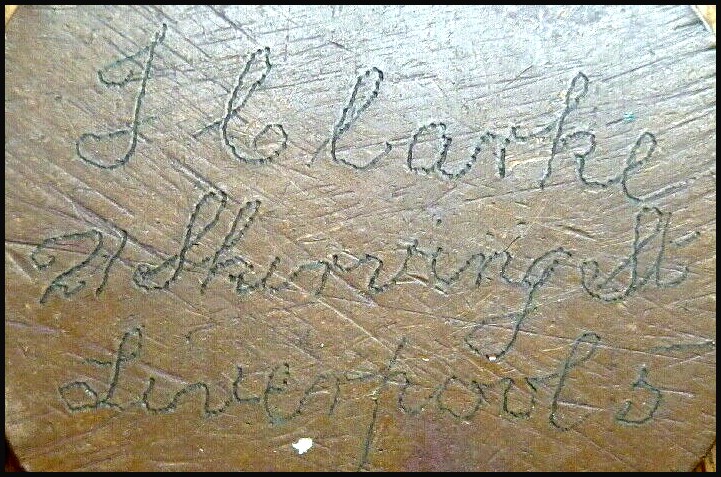 J Clarke
21 Skirving St
Liverpool 5